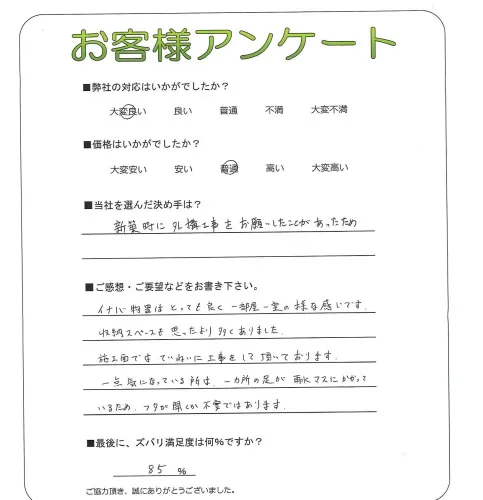 お客様アンケート
■弊社の対応はいかがでしたか？
大変良い 良い 普通 不満 大変不満
■価格はいかがでしたか？
大変安い 安い 普通 高い 大変高い
■当社を選んだ決め手は？
新築時に外構工事をお願いしたことがあったため
■ご感想・ご要望などをお書き下さい。
イナバ物置はとっても良く一部屋一室の様な感じです。
収納スペースも思ったより多くありました。
施工面では ていねいに工事をして頂いております。
一点気になっている所は、一カ所の足が雨水マスにかかって
いるため、フタが開くか不安ではあります。
■最後に、ズバリ満足度は何%ですか？
85 %
ご協力頂き、誠にありがとうございました。